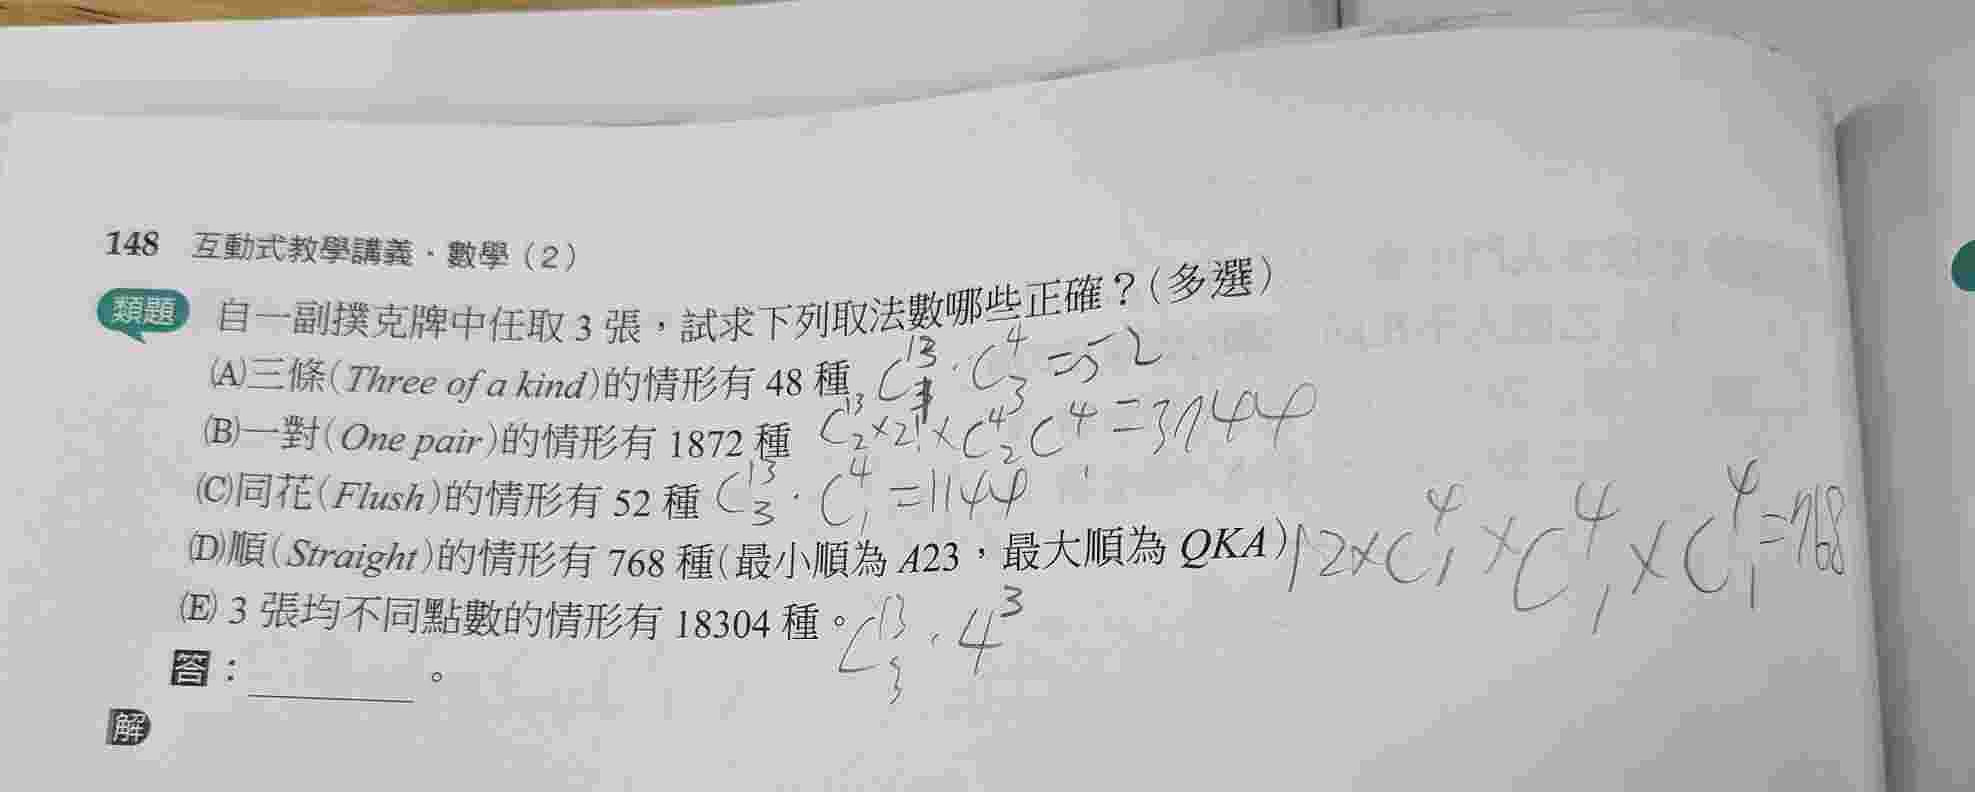 148 互動式教學講義・數學（2）
類題 自一副撲克牌中任取 3 張，試求下列取法數哪些正確？（多選）
(A)三條(Three of a kind)的情形有 48 種 C¹³₁·C⁴₃=52
(B)一對(One pair)的情形有 1872 種 C¹³₂×2!×C⁴₂C⁴₁=3744
(C)同花(Flush)的情形有 52 種 C¹³₃·C⁴₁=1144
(D)順(Straight)的情形有 768 種(最小順為 A23，最大順為 QKA) 12×C⁴₁×C⁴₁×C⁴₁=768
(E) 3 張均不同點數的情形有 18304 種。 C¹³₃·4³
答：＿＿＿＿。
解